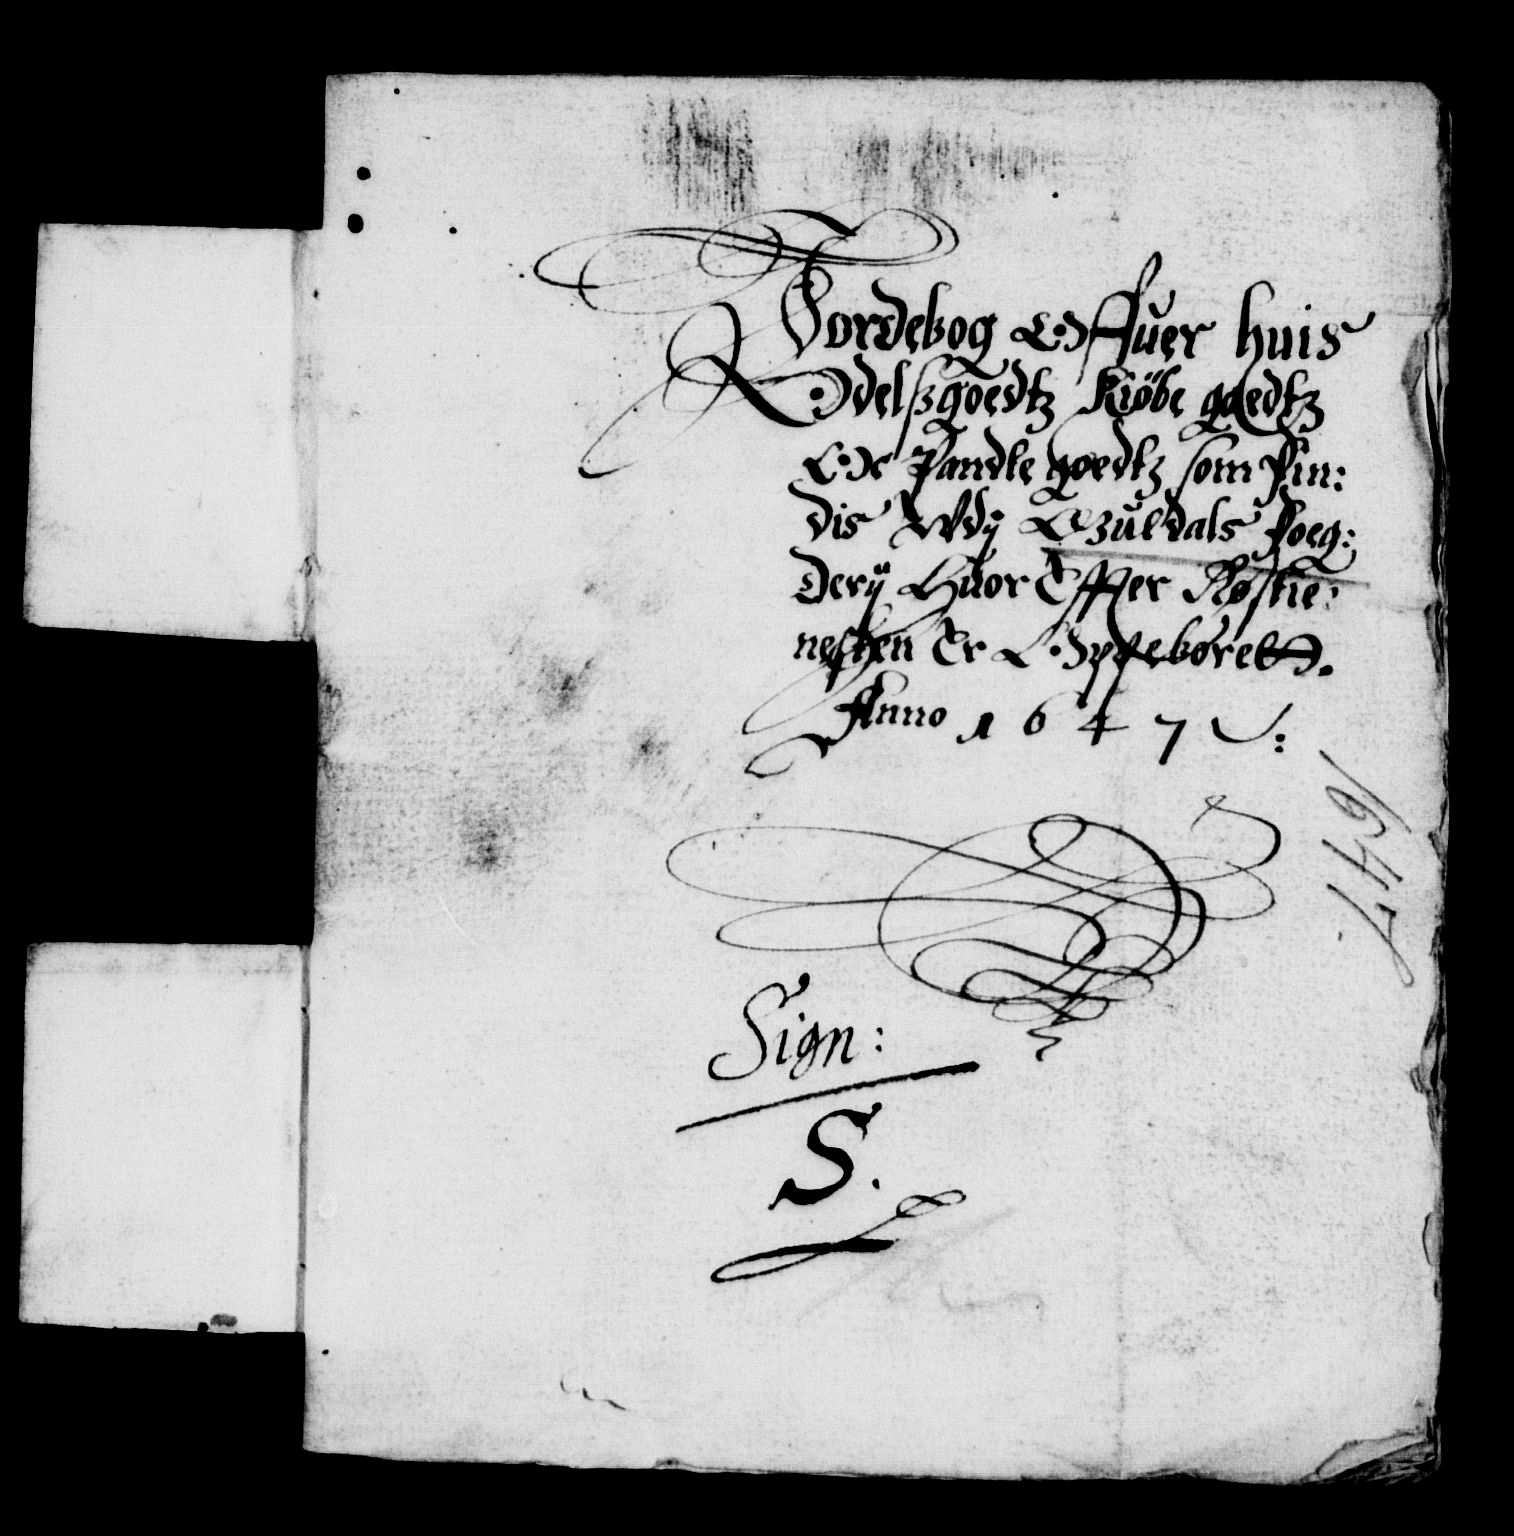 Jordebog Offuer huis
Odelszgoedtz Kiøbe goedtz
Oc Pandte goedtz som fin:
dis Wdj Gzuldals foeg:
derij Huor Effter Rostie:
nesten Er Oppebøret.
Anno 1647:
1647.
Sign:
S.